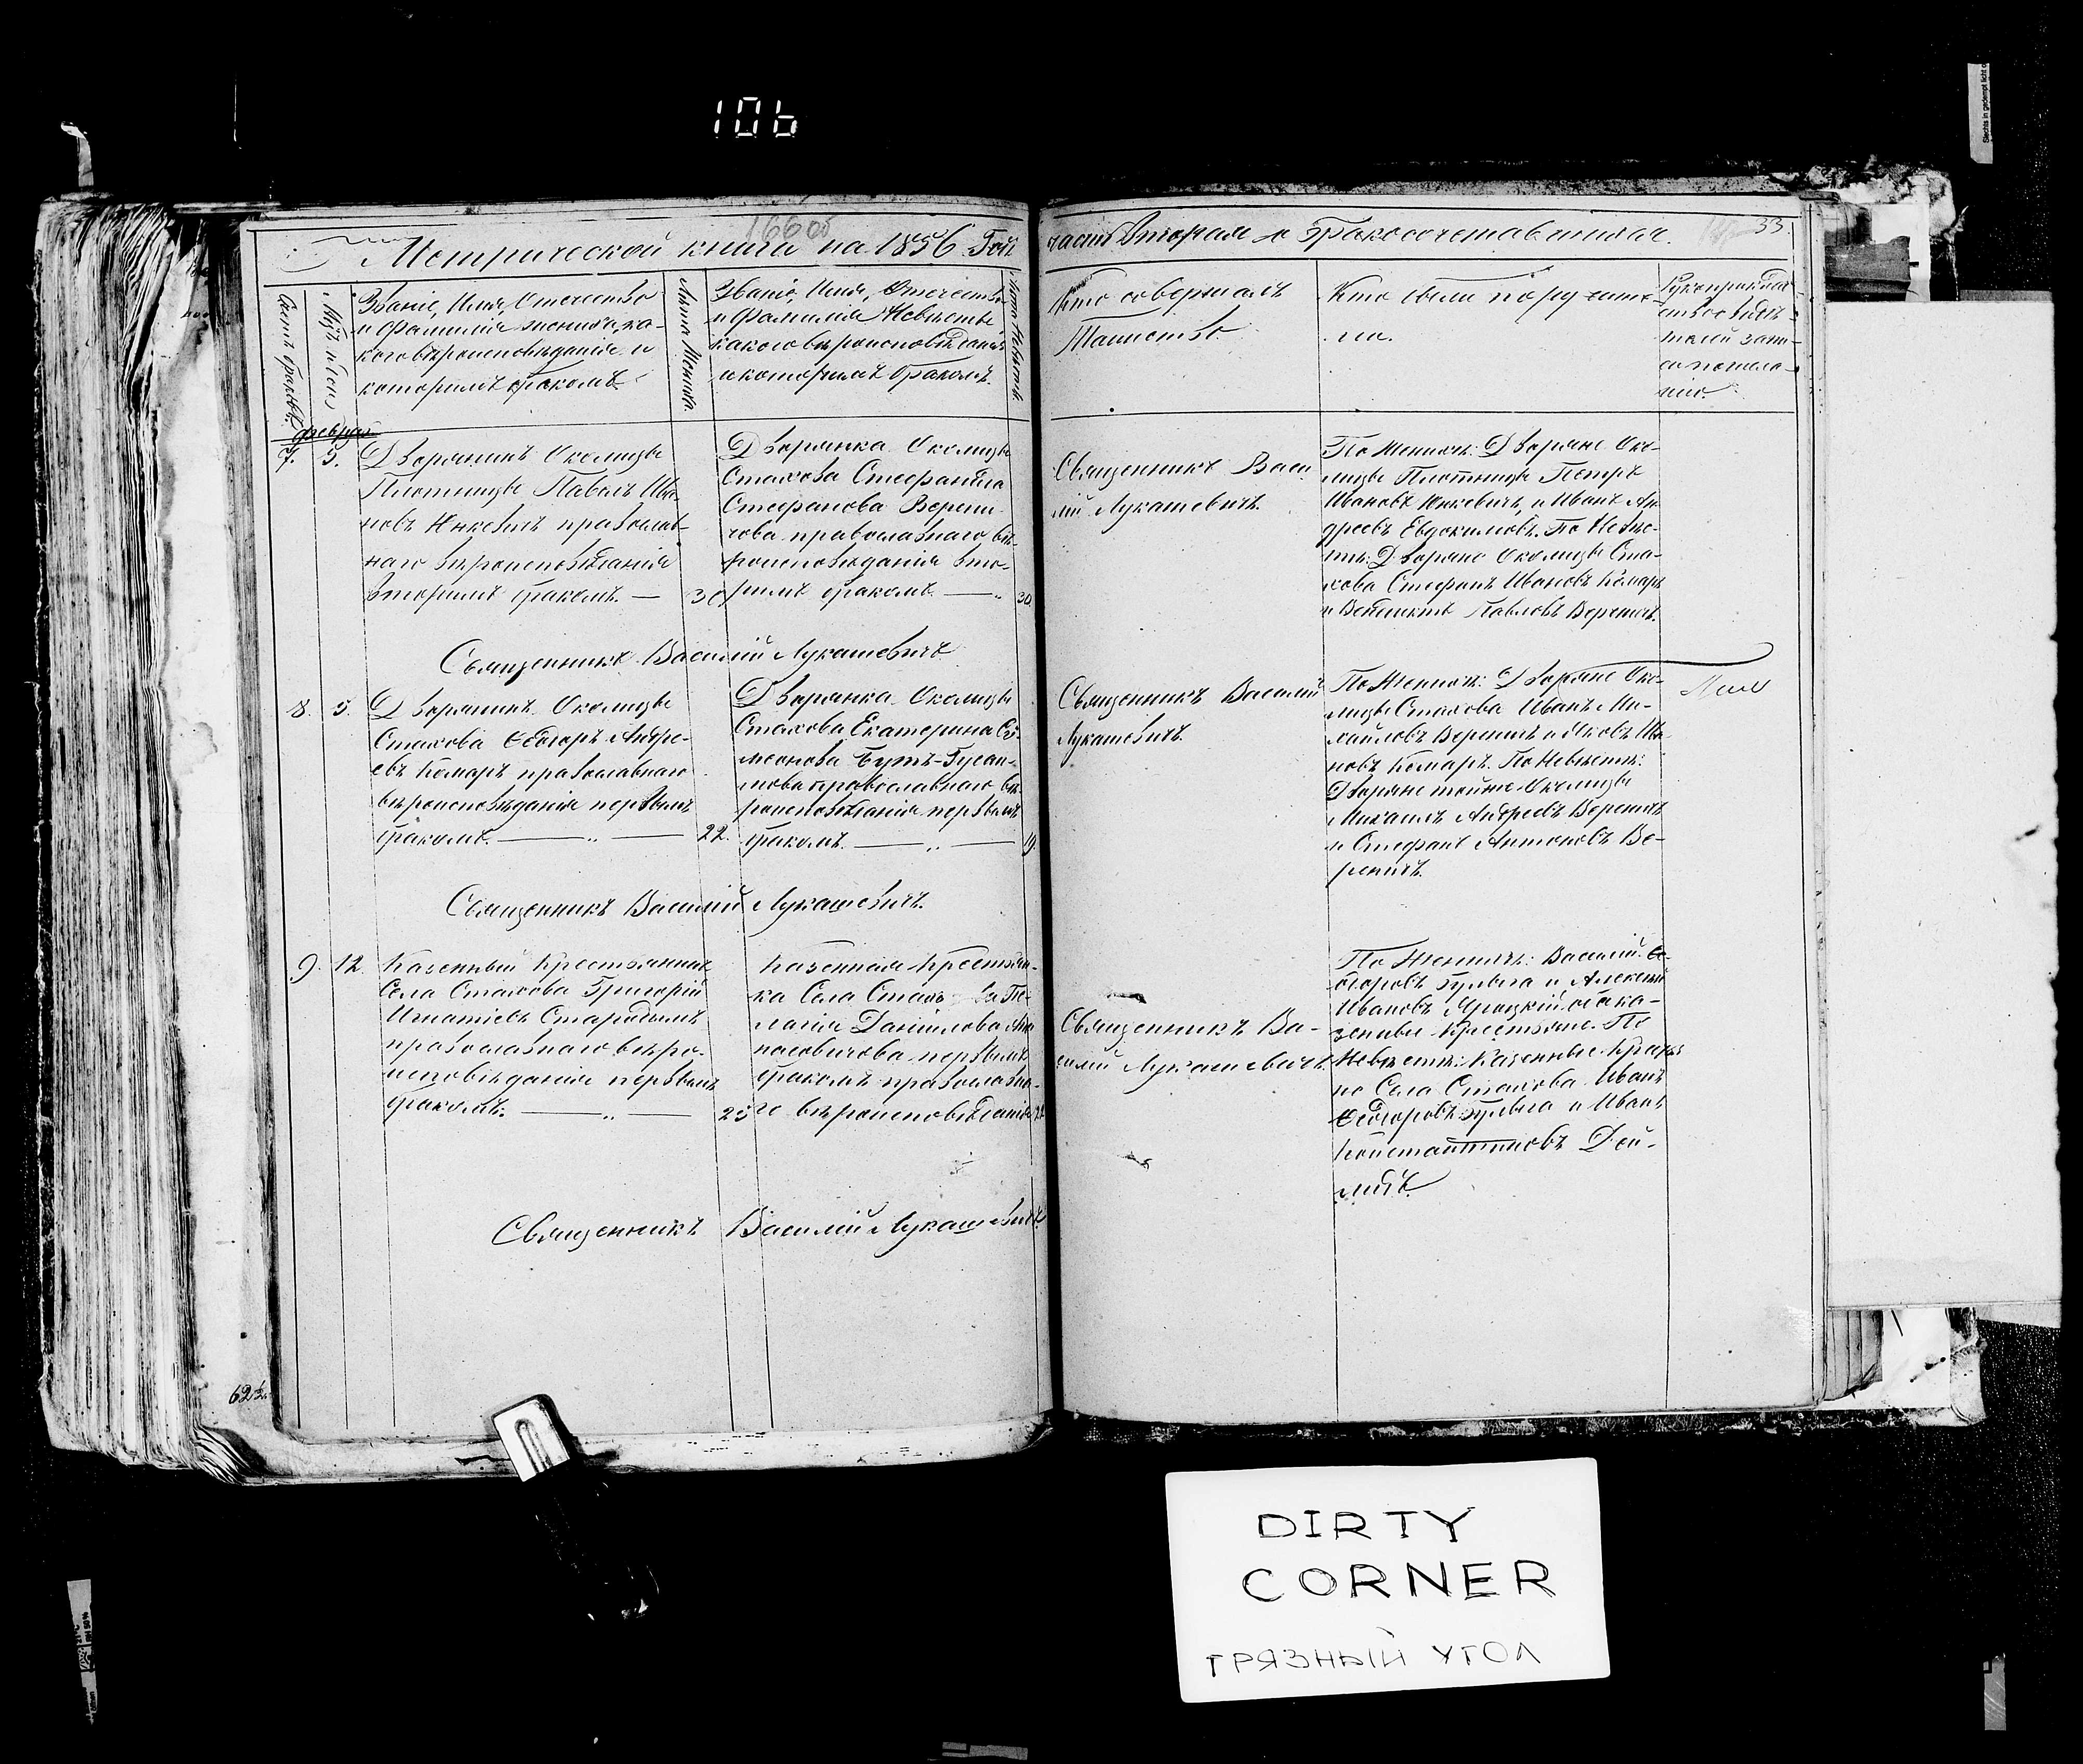 106
16608
Метрической книги на 1856 Годъ
часть Вторая о Бракосочетавшихся.
33.
Счетъ браковъ.
Мѣс. и день
Званіе, Имя, Отечество
и Фамилія жениха, ка-
кого вѣроисповѣданія и
которымъ бракомъ
Лѣта Жениха.
Званіе, Имя, Отечество
и Фамилія Невѣсты
какого вѣроисповѣданія
и которымъ бракомъ.
Лѣта Невѣсты.
Кто совершалъ
Таинство.
Кто были поручите-
ли.
Рукоприклад-
ство свидѣ-
телей запи-
си по жела-
нію.
Февраля
7.
5.
Дворянинъ Околицы
Плотницы Павелъ Ива-
новъ Юнкевичъ православ-
наго вѣроисповѣданія
вторымъ бракомъ. —
30
Дворянка Околицы
Стахова Стефанида
Стефанова Верени-
чова православнаго вѣ-
роисповѣданія вто-
рымъ бракомъ — „
30.
Священникъ Васи-
лій Лукашевичъ.
По Женихѣ: Дворяне Око-
лицы Плотницы Петръ
Ивановъ Юнкевичъ, и Иванъ Ан-
дреевъ Евдокимовъ. По Невѣс-
тѣ: Дворяне Околицы Ста-
хова Стефанъ Ивановъ Комаръ
и Венедиктъ Павловъ Вереничъ.
Священникъ Василій Лукашевичъ
8.
5.
Дворянинъ Околицы
Стахова Ѳедоръ Андре-
евъ Комаръ православнаго
вѣроисповѣданія первымъ
бракомъ. — „ —
22.
Дворянка Околицы
Стахова Екатерина Си-
меонова Бутъ-Гусаи-
мова православнаго вѣ-
роисповѣданія первымъ
бракомъ. — „ —
19.
Священникъ Василій
Лукашевичъ.
По Женихѣ: Дворяне Око-
лицы Стахова Иванъ Ми-
хайловъ Вереничъ и Яковъ Ива-
новъ Комаръ. По Невѣстѣ:
Дворяне тойже Околицы
Михаилъ Андреевъ Вереничъ
и Стефанъ Антоновъ Ве-
реничъ.
Священникъ Василій Лукашевичъ.
9.
12.
Казенный Крестьянинъ
Села Стахова Григорій
Игнатіевъ Стародымъ
православнаго вѣро-
исповѣданія первымъ
бракомъ. — „ —
25
Казенная Крестьян-
ка Села Стахова Пе-
лагія Даніилова
первымъ
бракомъ православна-
го вѣроисповѣданія
Священникъ Ва-
силій Лукашевичъ.
По Женихѣ: Василій Ѳе-
доровъ Гулыга и Алексѣй
Ивановъ Ярмоцкій оба ка-
зенные Крестьяне. По
Невѣстѣ: Казенные Крестья-
не Села Стахова Иванъ
Ѳедоровъ Гулыга и Иванъ
Константиновъ Дей-
Священникъ Василій Лукашевичъ
DIRTY
CORNER
ГРЯЗНЫЙ УГОЛ